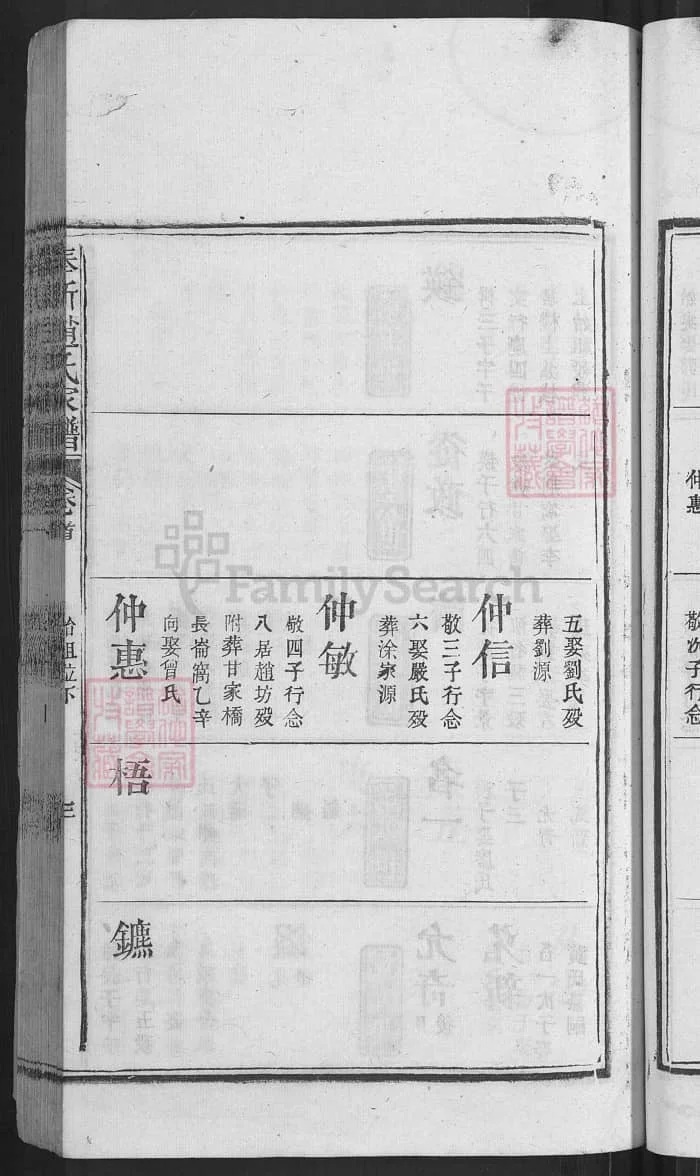 五娶劉氏殁
葬劉源
仲信
敬三子行念
六娶嚴氏殁
葬涂家源
仲敏
敬四子行念
八居趙坊殁
附葬甘家橋
長崙窩乙辛
向娶曾氏
仲惠
梧
鑣
奉新趙氏家譜
卷首
始祖位下
三
仲惠
敬次子行念
FamilySearch